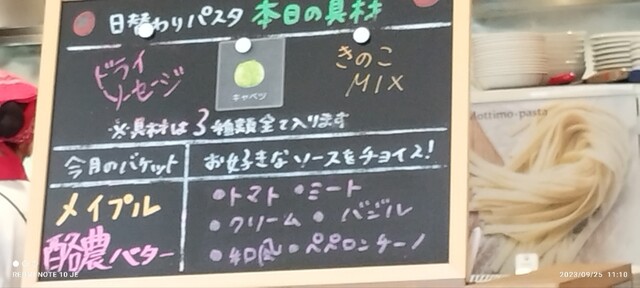 日替わりパスタ 本日の具材
ドライソーセージ
キャベツ
きのこMIX
※具材は3種類全て入ります
今月のバケット
お好きなソースをチョイス!
メイプル
酪農バター
●トマト ●ミート
●クリーム ● バジル
●和風 ●ペペロンチーノ
Mottimo-pasta
REDMI NOTE 10 JE
2023/09/25 11:10